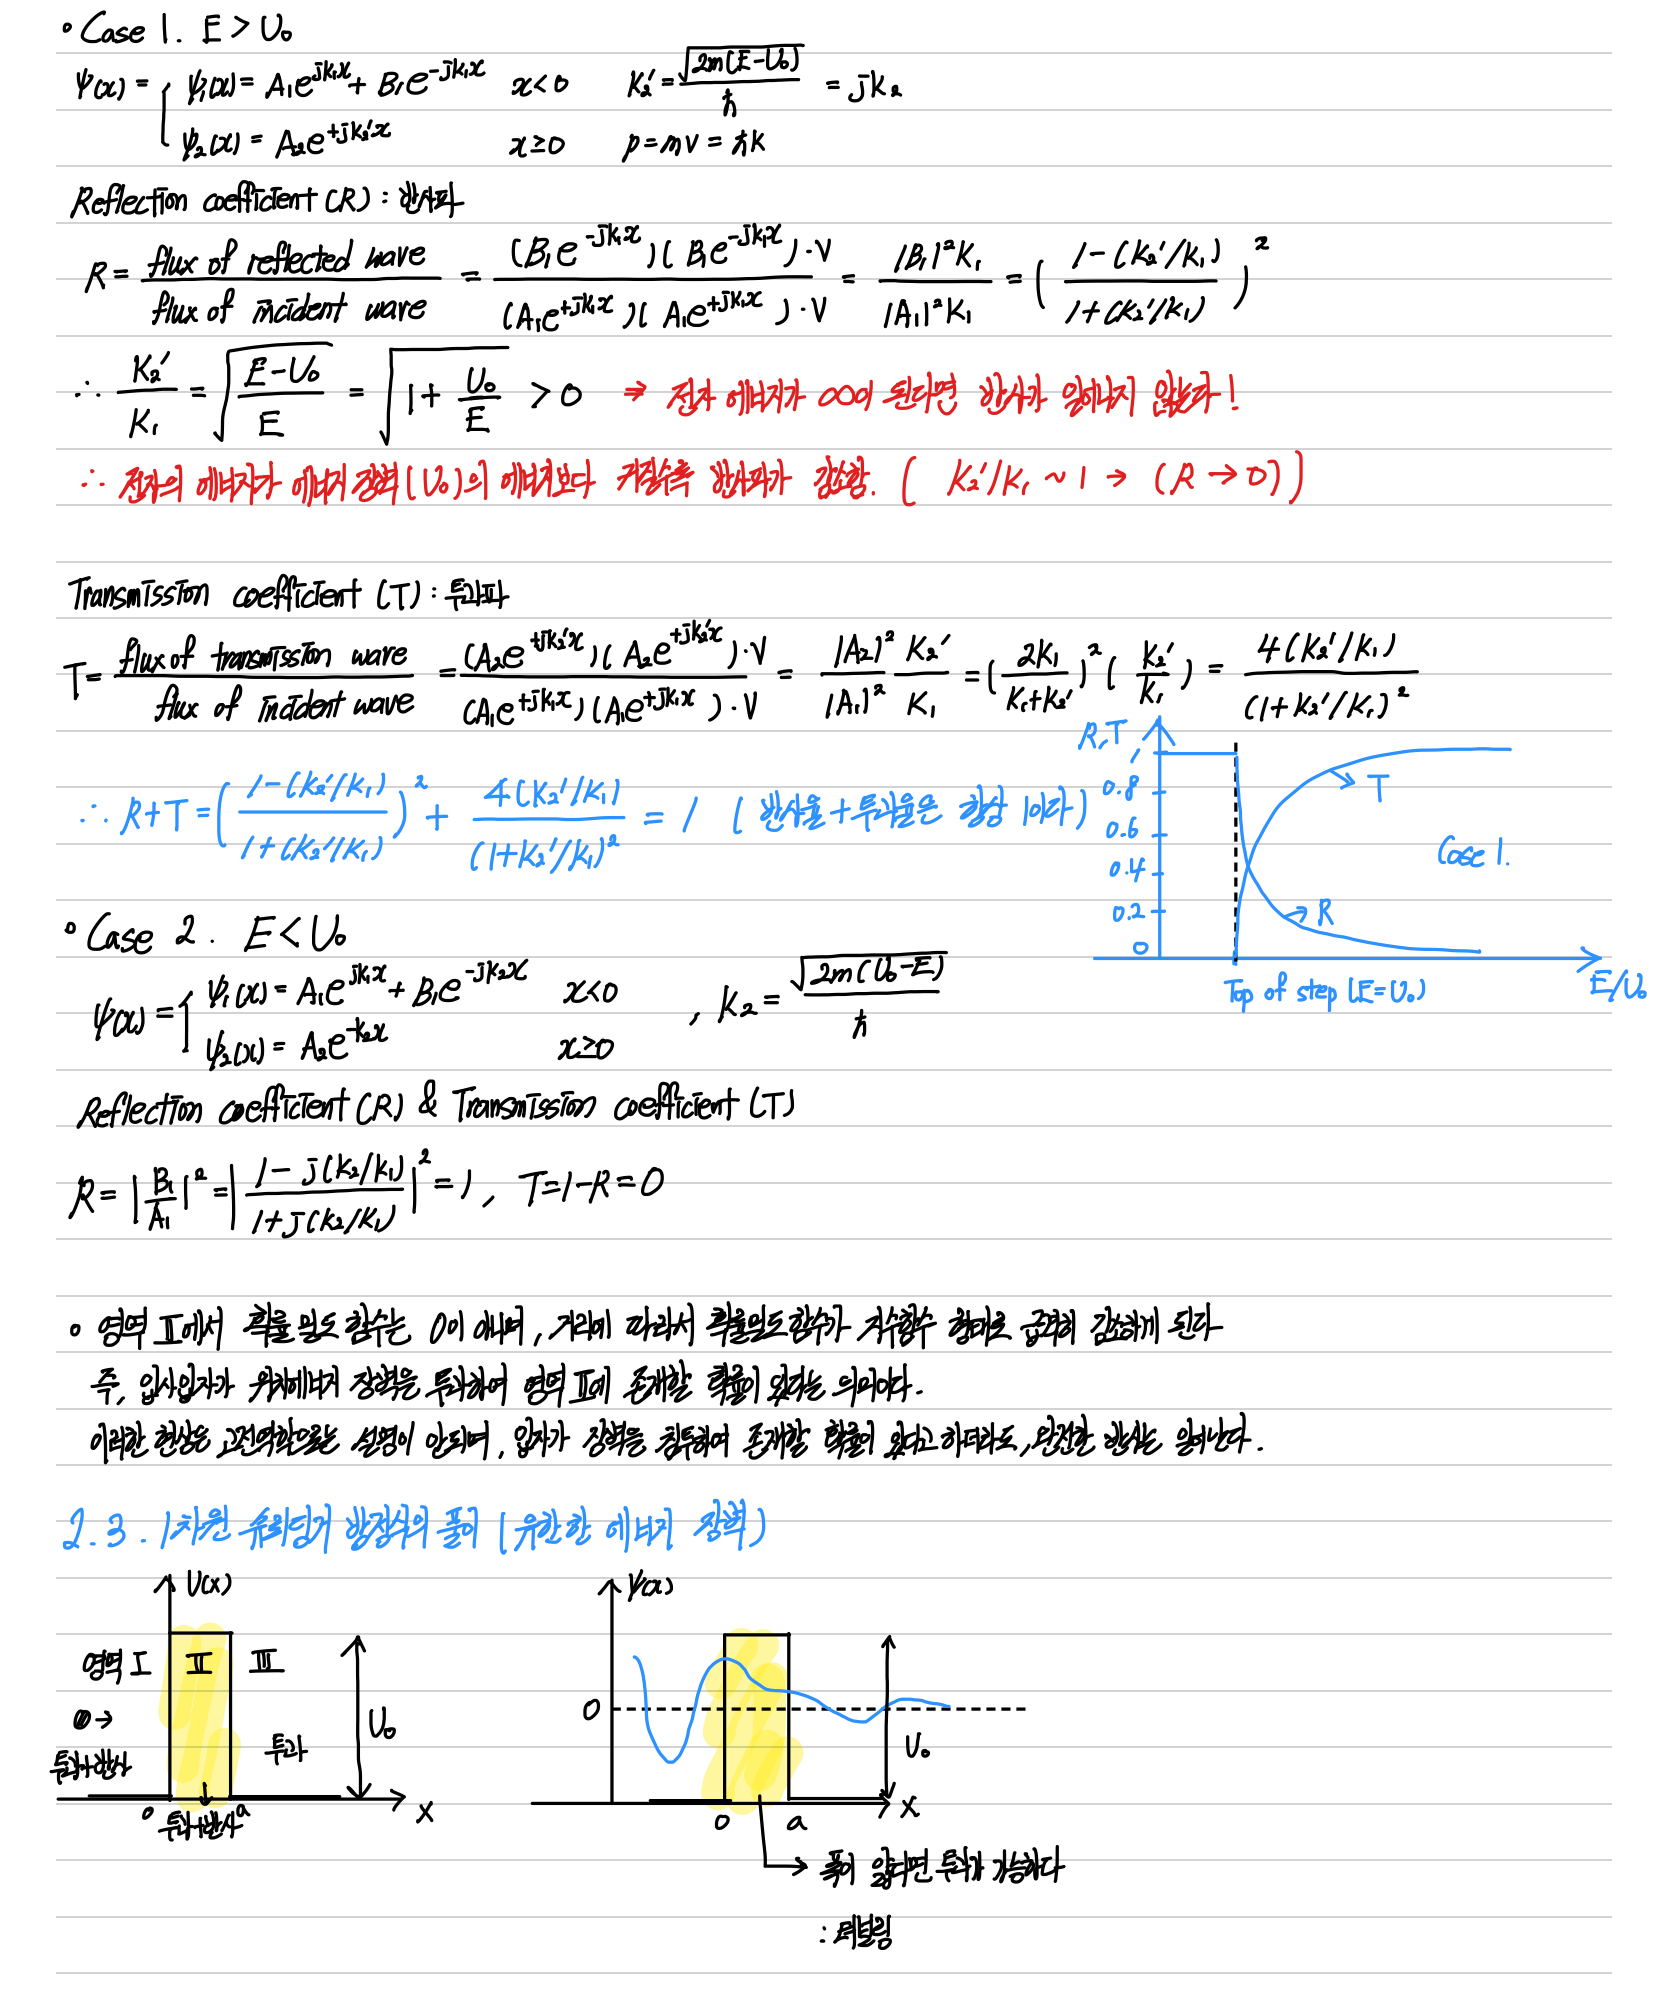 ∘ Case 1. E > U₀
ψ(x) = { ψ₁(x) = A₁e^{jk₁x} + B₁e^{-jk₁x}  x<0  K₂' = √(2m(E-U₀)) / ħ = jk₂
ψ₂(x) = A₂e^{+jk₂'x}  x≥0  p = mv = ħk
Reflection coefficient (R) : 반사파
R = flux of reflected wave / flux of incident wave = (B₁e^{-jk₁x})(B₁e^{-jk₁x})·V / (A₁e^{+jk₁x})(A₁e^{+jk₁x})·V = |B₁|²K₁ / |A₁|²K₁ = ( 1-(K₂'/k₁) / 1+(K₂'/k₁) )²
∴ K₂'/K₁ = √(E-U₀ / E) = √(1 + U₀/E) > 0 ⇒ 전자 에너지가 ∞이 된다면 반사가 일어나지 않는다!
∴ 전자의 에너지가 에너지 장벽(U₀)의 에너지보다 커질수록 반사파가 감소함. ( K₂'/K₁ ~ 1 → (R → 0))
Transmission coefficient (T) : 투과파
T = flux of transmission wave / flux of incident wave = (A₂e^{+jk₂'x})(A₂e^{+jk₂'x})·V / (A₁e^{+jk₁x})(A₁e^{+jk₁x})·V = |A₂|²/|A₁|² K₂'/K₁ = (2K₁ / K₁+K₂')² (K₂'/K₁) = 4(K₂'/K₁) / (1+K₂'/K₁)²
∴ R+T = ( 1-(K₂'/K₁) / 1+(K₂'/K₁) )² + 4(K₂'/K₁) / (1+K₂'/K₁)² = 1 ( 반사율+투과율은 항상 1이다)
R,T
1
0.8
0.6
0.4
0.2
0
T
R
Case 1.
Top of step (E=U₀)
E/U₀
∘ Case 2. E < U₀
ψ(x) = { ψ₁(x) = A₁e^{jk₁x} + B₁e^{-jk₂x}  x<0 , k₂ = √(2m(U₀-E)) / ħ
ψ₂(x) = A₂e^{-k₂x}  x≥0
Reflection coefficient (R) & Transmission coefficient (T)
R = |B₁/A₁|² = | 1-j(k₂/k₁) / 1+j(k₂/k₁) |² = 1, T=1-R=0
∘ 영역 Ⅱ에서 확률 밀도 함수는 0이 아니며, 거리에 따라서 확률밀도함수가 지수함수 형태로 급격히 감소하게 된다
즉, 입사입자가 위치에너지 장벽을 투과하여 영역 Ⅱ에 존재할 확률이 있다는 의미이다.
이러한 현상은 고전역학으로는 설명이 안되며, 입자가 장벽을 침투하여 존재할 확률이 있다고 하더라도, 완전한 반사는 일어난다.
2.3. 1차원 슈뢰딩거 방정식의 풀이 (유한한 에너지 장벽)
U(x)
영역 Ⅰ Ⅱ Ⅲ
→
투과+반사
투과
U₀
0 a x
투과+반사
ψ(x)
0
U₀
0 a x
폭이 얇다면 투과가 가능하다
: 터널링